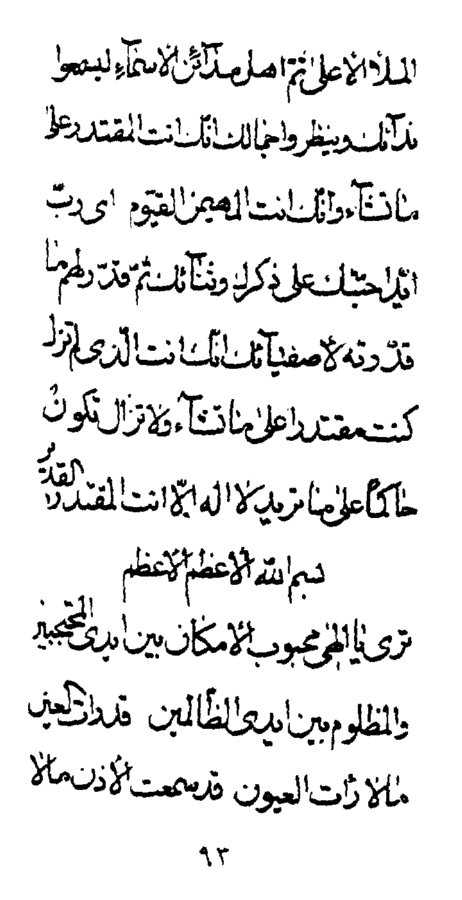 الملأ الاعلی ثمّ اهل مدآئن الاسمآء لیسمعوا
ندآئک و ینظروا جمالک انّک انت المقتدر علی
ما تشآء و انّک انت المهیمن القیّوم ای ربّ
ایّد احبّتک علی ذکرک و ثنآئک ثمّ قدّر لهم ما
قدّرته لأصفیآئک انّک انت الّذی لم تزل
کنت مقتدرا علی ما تشآء و لا تزال تکونُ
حاکماً علی ما ترید لا اله الّا انت المقتدر القدیر
بسم اللّه الأعظم الأعظم
تری یا الهی محبوب الأمکان بین ایدی المحتجبین
والمظلوم بین ایدی الظّالمین قد رات العین
ما لا رات العیون قد سمعت الأذن ما لا
٩٣